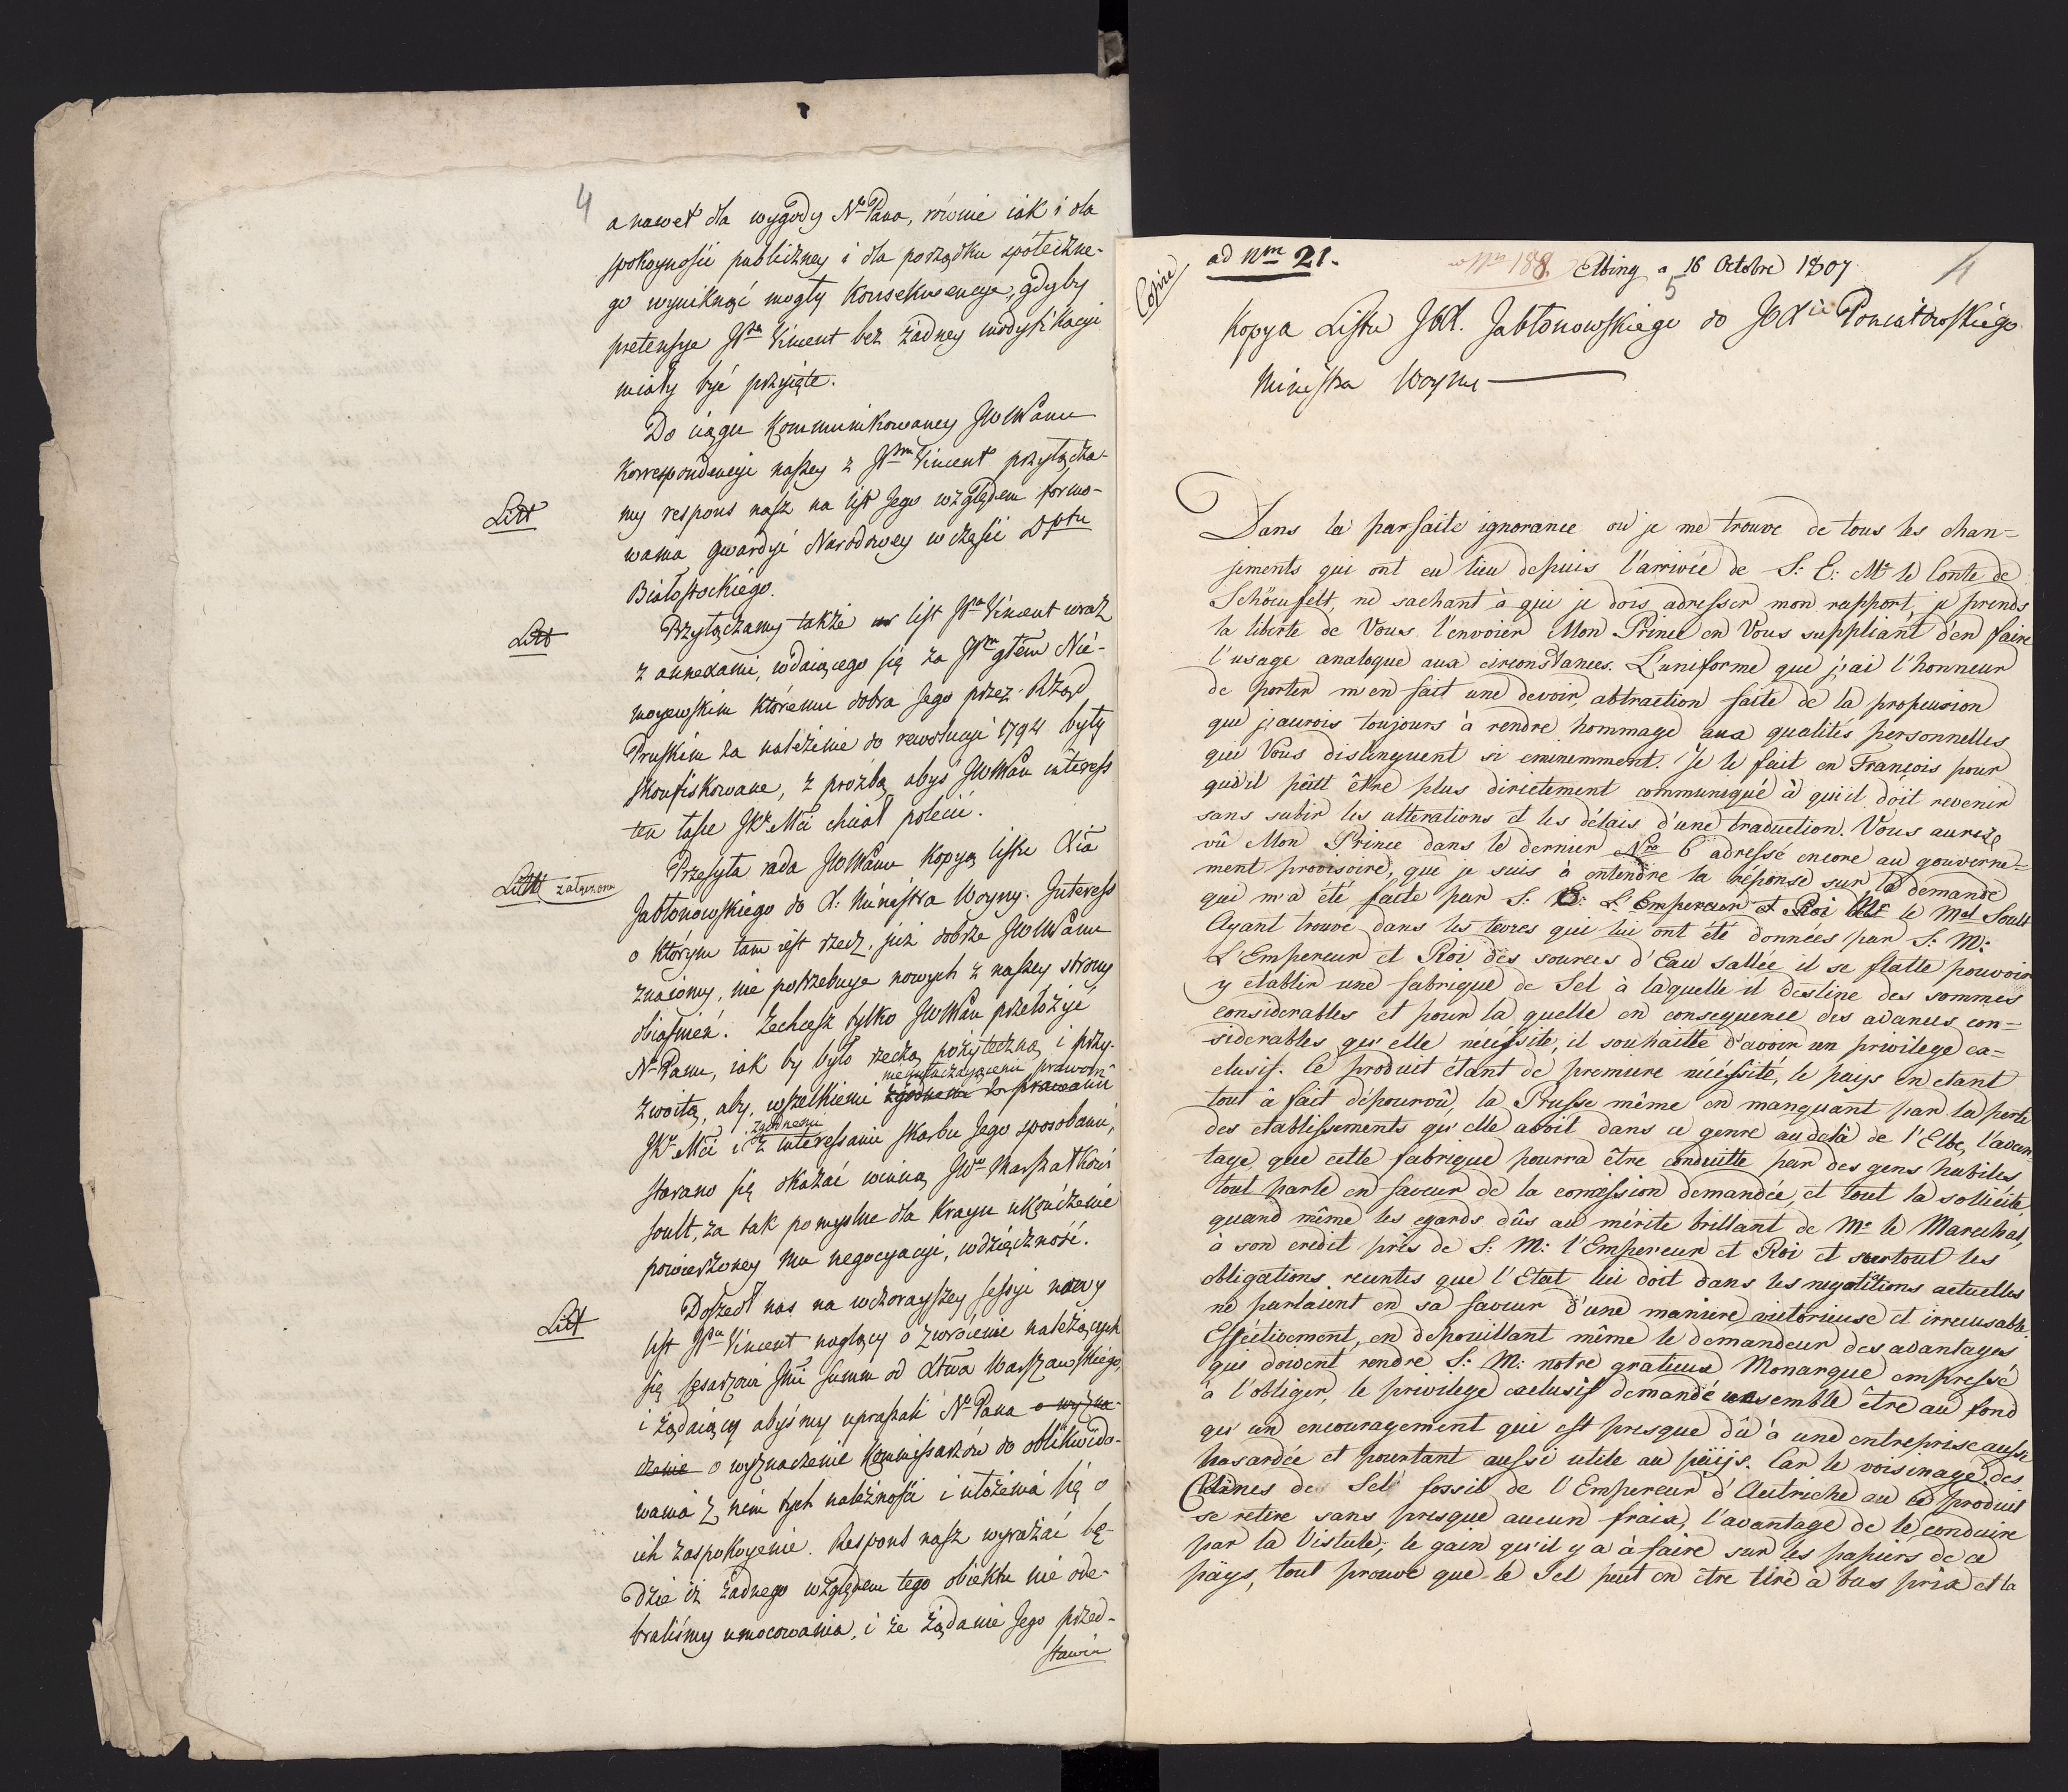 4
a nawet dla wygody No Pana, równie iak i dla
spokoyności publiczney i dla porządku społeczne-
go wyniknąć mogły konsekwencye, gdyby
pretensye JPa Vincent bez żadney modyfikacyi
miały być przyięte.
Do ciągu kommunikowaney JWWPanu
korrespondencyi naszey z JPm Vincent przyłącza-
Litt
my respons nasz na list Jego względem formo-
wania Gwardyi Narodowey w części Dptu
Białostockiégo.
Przyłączamy także list JPa Vincent wraz
Litt
z annexami, wdaiącego się za JPm głem Nie-
moyewskim któremu dobra Jego przez Rząd
Pruskim za należenie do rewolucyi 1794 były
skonfiskowane, z prozbą abyś JWWPan interess
ten łasce JKr. Mci chciał polecić.
Przesyła rada JWWPanu kopyą listu Xcia
Litt załączona
Jabłonowskiego do X. Ministra Woyny. Interess
o którym tam iest rzecz, już dobrze JWWPanu
znaiomy, nie potrzebuye nowych z naszey strony
obiaśnień. Zechcesz tylko JWWPan przełożyć
No Panu, iak by było rzeczą pożyteczną i przy-
zwoitą, aby wszelkiemi zgodnemi z prawami
JKr Mci i z zgodnemi interessami skarbu Jego sposobami,
starano się okazać winną JWu Marszałkowi
Soult, za tak pomyslne dla Kraju ukończenie
powierzoney mu negocyacyi, wdzięczność.
Doszedł nas na wczorayszey sessyi nowy
Litt
list JPa Vincent naglący o zwrócenie należących
się Cesarzowi Jmci summ od Xtwa Warszawskiego,
i żądaiący abyśmy upraszali No Pana o wyzna-
czenie o wyznaczenie Kommissarzów do oblikwido-
wania z nim tych należności i ułożenia się o
ich zaspokoyenie. Respons nasz wyrażać bę-
dzie iż żadnego względem tego obiektu nie ode-
braliśmy umocowania, i że żądanie Jego przed-
stawim
Copie
ad Num 21.
No 188
Elbing a 16 Octobre 1807
5
4
Kopya Listu JOX. Jabłonowskiego do JOXcia Poniatowskiégo
Ministra Woyny
Dans la parfaite ignorance ou je me trouve de tous les chan-
jements qui ont eu lieu depuis l'arrivée de S: E: Mr le Conte de
Schöenfelt, ne sachant à qui je dois adresser mon rapport, je prends
la liberte de Vous l'envoier Mon Prince en Vous suppliant d'en faire
l'usage analogue aux circonstances. L'uniforme que j'ai l'honneur
de porter m'en fait une devoir, abtraction faite de la propension
que j'aurois toujours à rendre hommage aux qualités personnelles
qui Vous distinguent si eminemment. Je le fait en François pour
qu'il peut être plus dirictement communiqué à qui il doit revenir
sans subir les alterations et les délais d'une traduction. Vous aurez
vû Mon Prince dans le dernier Nro 6 adressé encore au gouverne-
ment provisoire, que je suis à entendre la réponse sur la demande
qui m'a été faite par S. E: L'Empereur et Roi Mr le Mal Soult
Ayant trouvé dans les terres qui lui ont été données par S: M:
L'Empereur et Roi des sources d'Eau sallée il se flatte pouvoir
y etablir une fabrique de Sel à laquelle il destine des sommes
considerables et pour la quelle en consequence des avances con-
siderables qu'elle nécéssite, il souhaitte d'avoir un privilege ex-
clusif. Ce produit étant de premiere nécéssité, le pays en etant
tout à fait dépourvû, la Prusse même en manquant par la perte
des etablissements qu'elle avoit dans ce genre au delà de l'Elbe, l'avan-
tage que cette fabrique pourra être conduitte par des gens habiles,
tout parle en faveur de la concession demandée, et tout la sollicite,
quand même les egards dûs au mérite brillant de Mr le Marechal,
à son credit près de S: M: l'Empereur et Roi et surtout les
obligations recentes que l'Etat lui doit dans les negotiations actuelles
ne parlaient en sa faveur d'une maniere victorieuse et irrecusable.
Efféctivement, en depouillant même le demandeur des avantages
qui doivent rendre S: M: notre gratieux Monarque empressé
à l'obliger, le privilege exclusif demandé ne semble être au fond
qu'un encouragement qui est presque dû à une entreprise aussi
hasardée et pourtant aussi utile au päijs. Car le voisinage des
Mines de Sel fossil de l'Empereur d'Autriche au ce produit
se retire sans presque aucun fraix, l'avantage de le conduire
par la Vistule, le gain qu'il y a à faire sur les papiers de ce
päys, tout prouve que le Sel peut en être tiré à bas prix et la